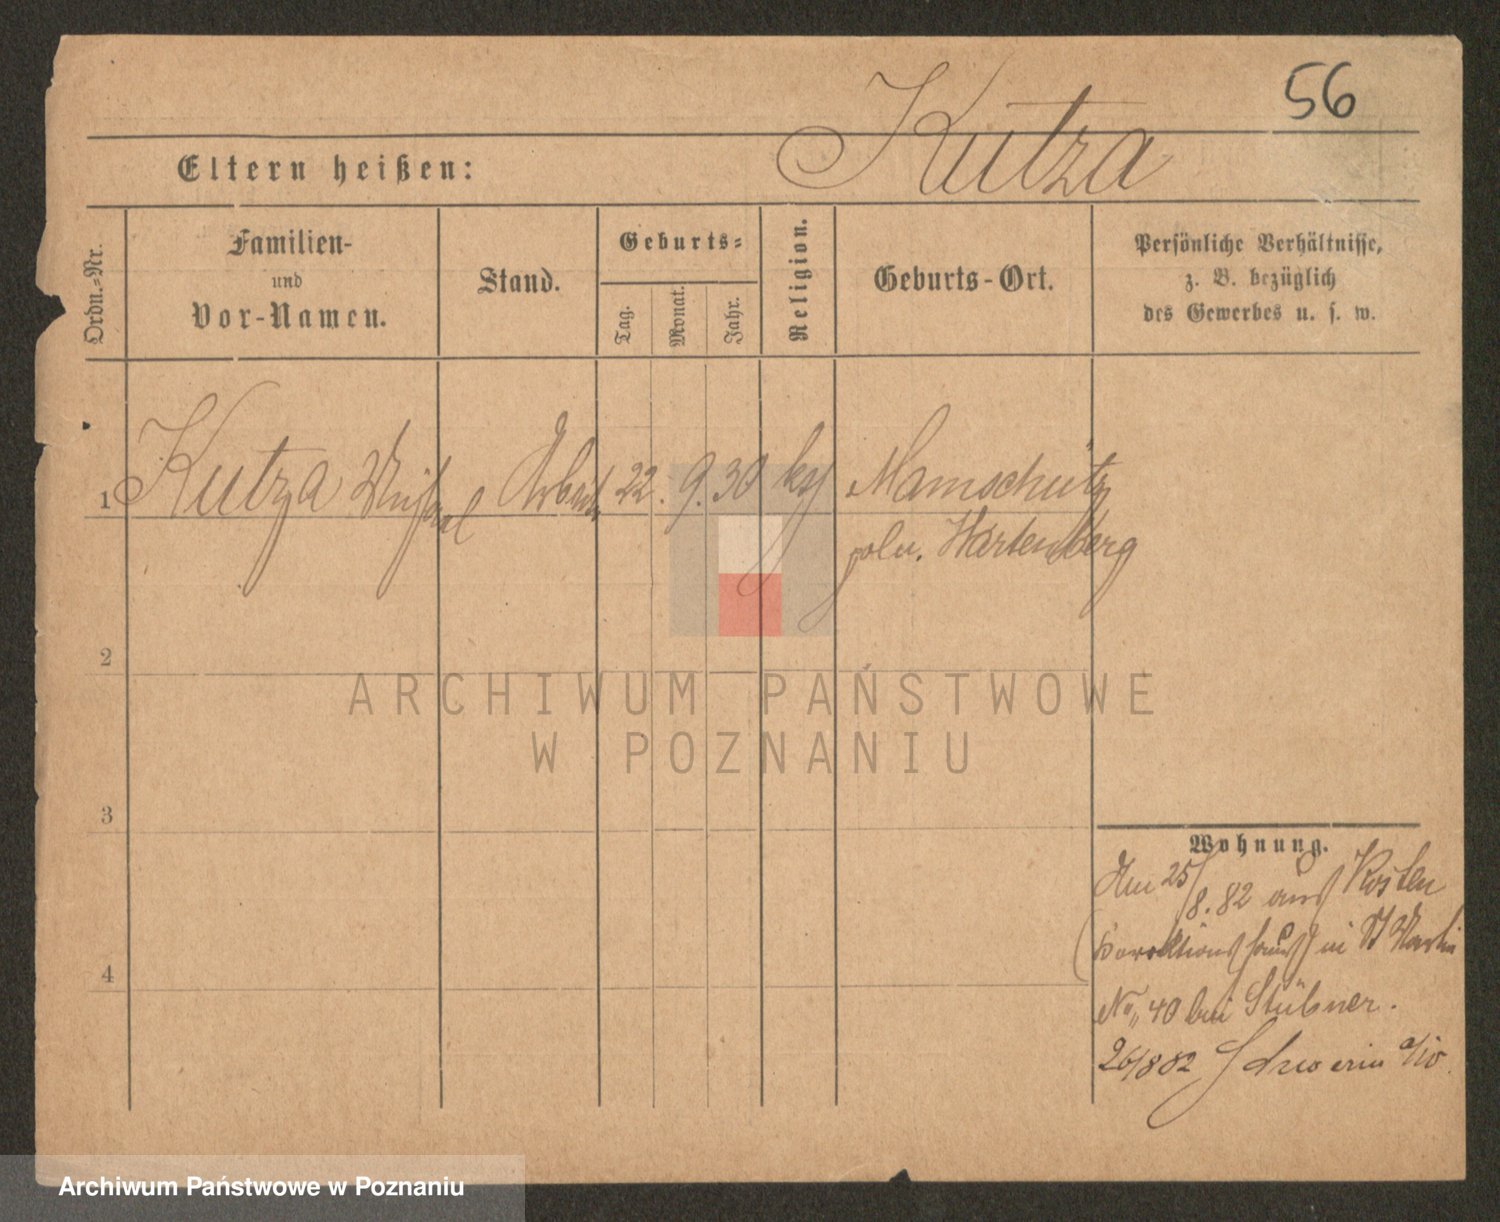 56
Kutza
Eltern heißen:
Ordn.-Nr.
Familien-
und
Vor-Namen.
Stand.
Geburts-
Tag.
Monat.
Jahr.
Religion.
Geburts-Ort.
Persönliche Verhältnisse,
z. B. bezüglich
des Gewerbes u. s. w.
1 Kutza Michael Arbeiter 22. 9. 30 Mamschütz
poln. Wartenberg
2
3
4
ARCHIWUM PAŃSTWOWE
W POZNANIU
Wohnung.
Am 25/8.82 aus Kosten
(Korrektionshaus) in St Martin
No 40 bei Stübner.
26/8 82 Schwerin a/W.
Archiwum Państwowe w Poznaniu